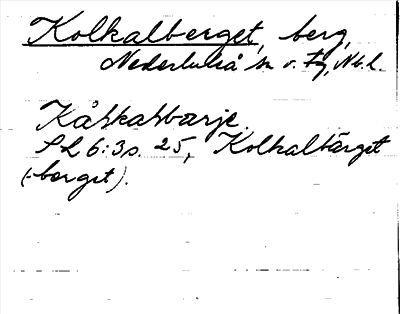 Kolkalberget, berg,
Nederluleå sn o. tg, Nb. l.
Kåskasbarje.
SL 6:3 s. 25, Kolkalbärget
(-berget).